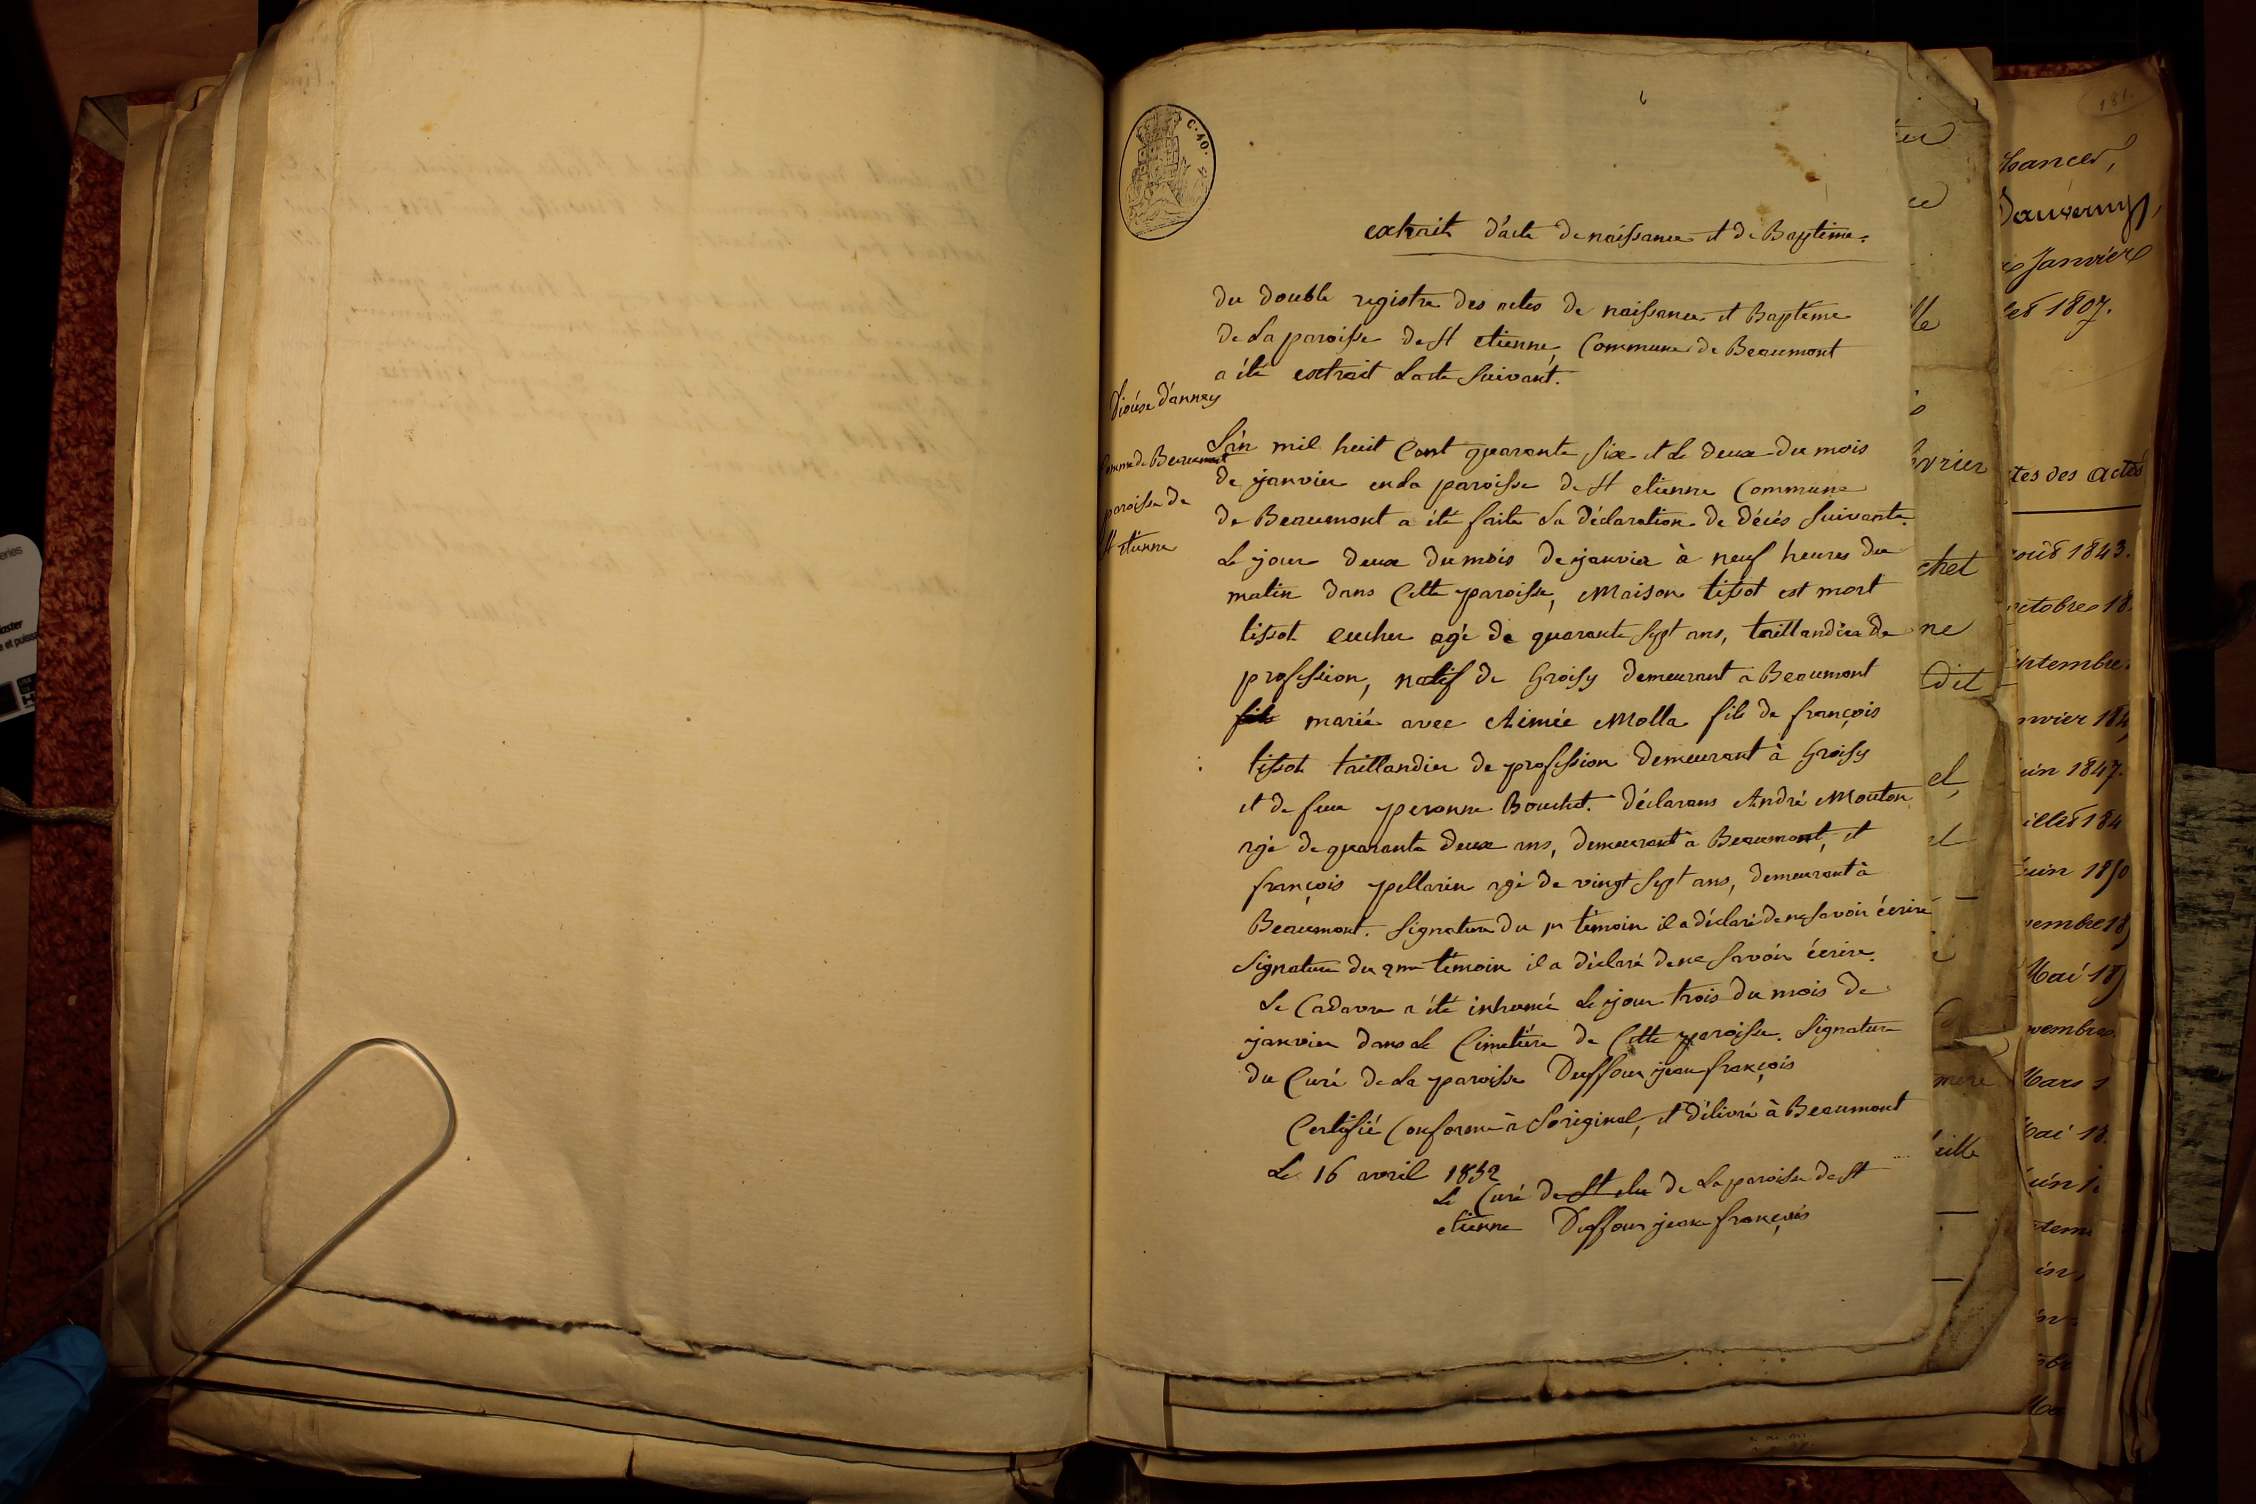 C. 40.
extrait d'acte de naissance et de Baptême.
du double registre des actes de naissance et Baptême
de la paroisse de St etienne, Commune de Beaumont
a été extrait l'acte suivant.
Diocèse d'annecy
Comune de Beaumont
paroisse de
St etienne
L'an mil huit Cent quarante six et le deux du mois
de janvier en la paroisse de St etienne Commune
de Beaumont a été faite la déclaration de décès suivante.
le jour deux du mois de janvier à neuf heures du
matin dans Cette paroisse, Maison tissot est mort
tissot eucher agé de quarante sept ans, taillandier de
profession, natif de Groisy demeurant a Beaumont
fils marié avec Aimée Molla fils de françois
tissot taillandier de profession demeurant à Groisy
et de feue peronne Bouchet. déclarans André Mouton
agé de quarante deux ans, demeurant a Beaumont, et
françois pellarin agé de vingt sept ans, demeurant à
Beaumont. Signature du pr témoin il a déclaré de ne savoir écrire
signature du 2me témoin il a déclaré de ne savoir écrire.
le Cadavre a été inhumé le jour trois du mois de
janvier dans le Cimetière de Cette paroisse. Signature
du Curé de la paroisse Duffour jean françois
Certifié Conforme à l'original, et délivré à Beaumont
le 16 avril 1852
le Curé de St etie de la paroisse de St
etienne Duffour jean françois
let
ce
lle
vrier
chet
ne
dit
el,
et
mere
uille
181.
Janvier
1807.
tes des actes
1843.
octobre 18
eptembre
nvier 184
uin 1847.
illet 184
uin 1850
vembre 18
Mai 18
vembre
Mars 1
Mai 18